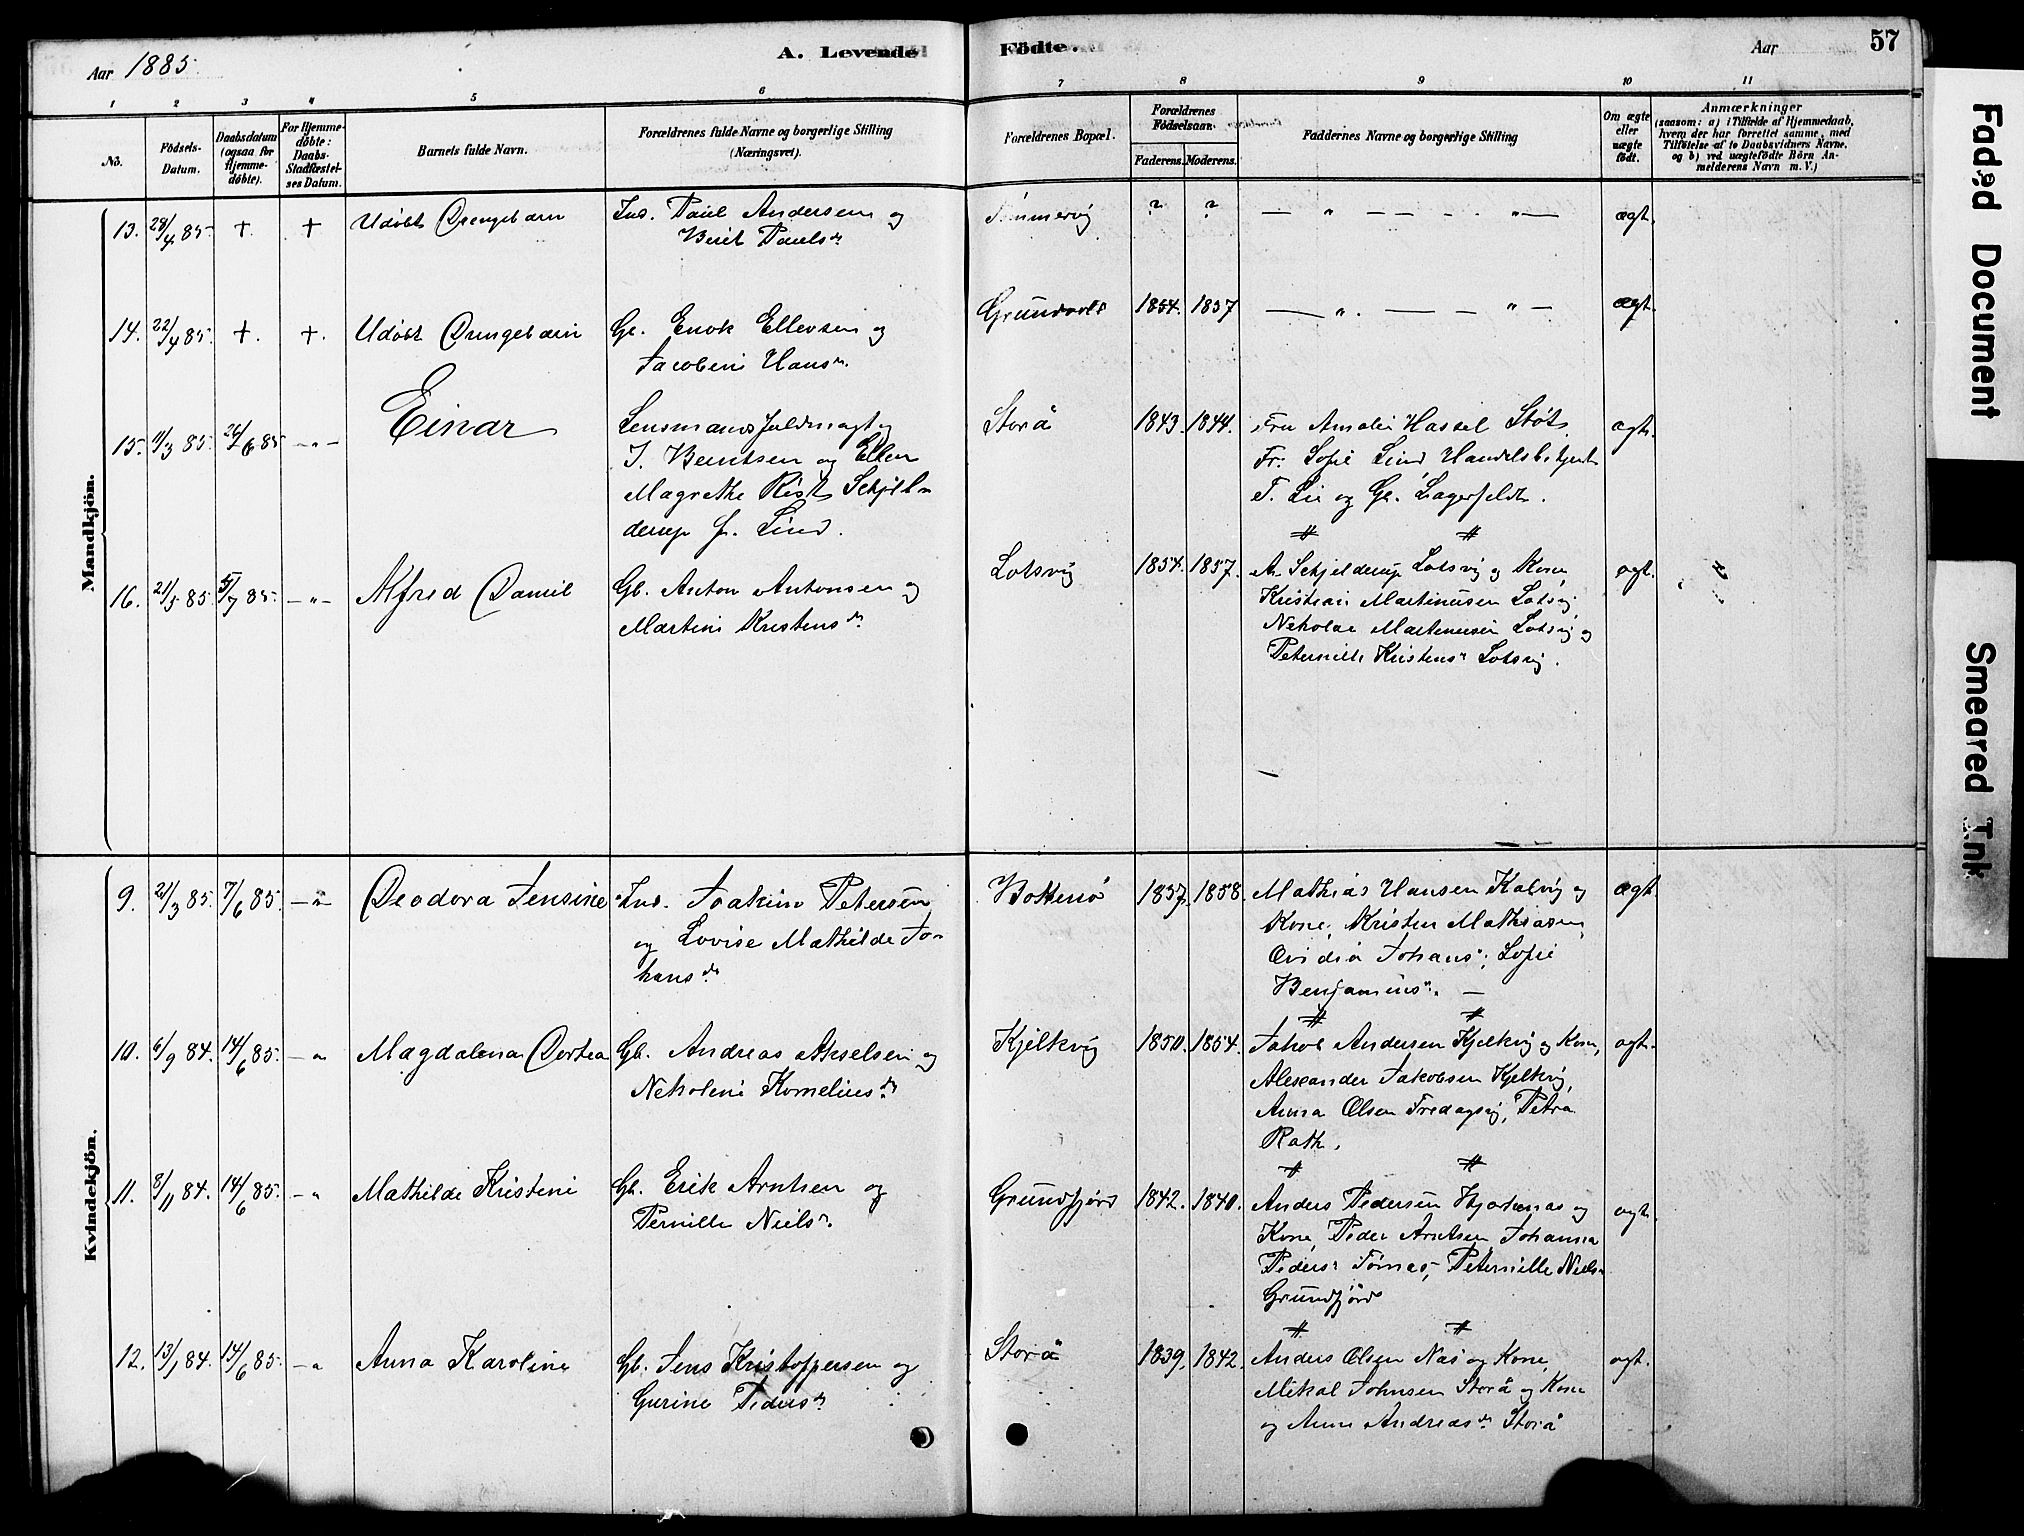 Aar 1885.
A. Levende Födte.
Aar
57
1 2 3 4 5 6 7 8 9 10 11
No.
Födsels-Datum.
Daabsdatum (ogsaa for Hjemme-döbte).
For Hjemme-döbte: Daabs-Stadfæstel-ses Datum.
Barnets fulde Navn.
Forældrenes fulde Navne og borgerlige Stilling
(Næringsvei).
Forældrenes Bopæl.
Forældrenes Födselsaar.
Faderens. Moderens.
Faddernes Navne og borgerlige Stilling
Om ægte eller uægte födt.
Anmærkninger
(saasom: a) i Tilfælde af Hjemmedaab,
hvem der har forrettet samme, med
Tilföielse af to Daabsvidners Navne,
og b) ved uægtefödte Börn An-
melderens Navn m. V.)
Mandkjön.
13. 28/4 85. + + Udøbt Drengebarn Ins. Paul Andersen og
Berit Pauls dr
? ? — " — — " — ægt.
14. 22/4 85. +. +. Udøbt Drengebarn Gb. Enok Ellevsen og
Jacobine Hans dr.
1854. 1857 — " . — — " — ægt.
15. 11/3 85. 24/6 85 — " — Einar Lensmandsfuldmægtig
J. Berntsen og Ellen
Magrethe Rist Schjel-
derup f. Lind.
Storå 1843. 1844. Fru Amalie Hassel Støt,
Fr. Sofie Lind Handelsbetjent
T. Lie og Gb. Lagerfeldt.
ægt.
16. 21/5 85. 5/7 85. — " — Alfred Daniel Gb. Anton Antonsen og
Martine Kristens dr
Lotsvig 1854. 1857. A. Schjelderup Lotsvig og Kone
Kristian Martinusen Lotsvig
Nekolai Martinusen Lotsvig og
Peternille Kristens dr Lotsvig.
ægt.
Kvindekjön.
9. 21/3 85. 7/6 85. — " — Deodora Jensine Ins. Joakim Petersen
og Lovise Mathilde Jo-
hans dr.
1857. 1858. Mathias Hansen Kalvig og
Kone, Kristen Mathiasen,
Ovidia Johans dr, Sofie
Benjamins dr. —
ægt.
10. 6/9 84. 14/6 85. — " Magdalena Dortea Gb. Andreas Akselsen og
Nekoline Kornelius dr
Kjelkvig 1850. 1854. Jakob Andersen Kjelkvig og Kone,
Alexander Jakobsen Kjelkvig,
Anna Olsen Fredagsvig, Petra
Rath.
ægt.
11. 8/11 84. 14/6 85. — " Mathilde Kristine Gb. Erik Arntsen og
Pernille Niels dr.
Grundfjord 1842. 1840. Anders Pedersen Hjertenæs og
Kone, Peder Arntsen Johanna
Peders dr Tømnes, Peternille Niels dr
Grundfjord
ægt.
12. 13/1 84. 14/6 85. — " Anna Karoline Gb. Jens Kristoffersen og
Gurine Peders dr
Storå 1839. 1842. Anders Olsen Næs og Kone,
Mikal Johnsen Storå og Kone
og Anne Andreas dr Storå
ægt.
Faded Document
Smeared Ink